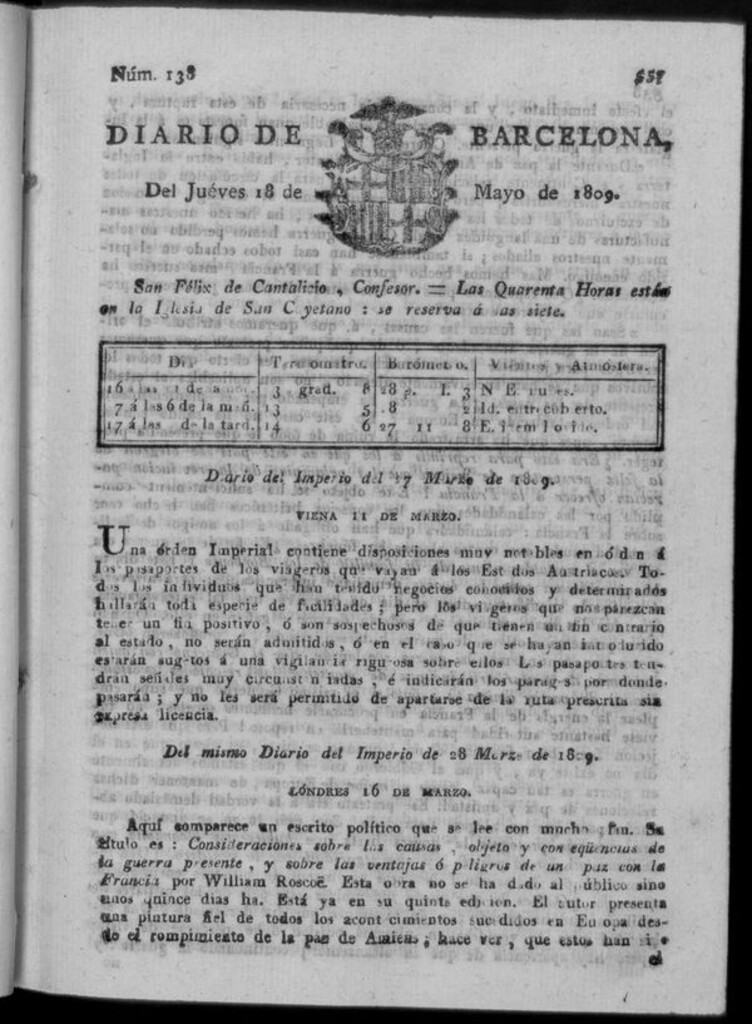 Núm. 138
557
DIARIO DE BARCELONA,
Del Juéves 18 de Mayo de 1809.
San Félix de Cantalicio, Confesor. = Las Quarenta Horas están
en la Iglesia de San Cayetano : se reserva á las siete.
Dias. Termómetro. Barómetro. Vientos y Atmósfera.
16 á las de la noc. 3 grad. 8 28 p. l. 3 N. E. nubes.
7 á las 6 de la mañ. 13 5 28 2 Id. entrecubierto.
17 á las de la tard. 14 6 27 11 8 E.
Diario del Imperio del 27 Marzo de 1809.
VIENA 11 DE MARZO.
Una órden Imperial contiene disposiciones muy notables en órden á
los pasaportes de los viageros que vayan á los Estados Austriacos. To-
dos los individuos que han tenido negocios conocidos y determinados
hallarán toda especie de facilidades ; pero los viageros que no parezcan
tener un fin positivo, ó son sospechosos de que tienen un fin contrario
al estado, no serán admitidos, ó en el caso que se hayan introducido
estarán sugetos á una vigilancia rigurosa sobre ellos Los pasaportes ten-
drán señales muy circunstanciadas, é indicarán los parages por donde
pasarán ; y no les será permitido de apartarse de la ruta prescrita sin
expresa licencia.
Del mismo Diario del Imperio de 28 Marzo de 1809.
LÓNDRES 16 DE MARZO.
Aquí comparece un escrito político que se lee con mucho afan. Su
título es : Consideraciones sobre las causas, objeto y conseqüencias de
la guerra presente, y sobre las ventajas ó peligros de una paz con la
Francia por William Roscoë. Esta obra no se ha dado al público sino
unos quince dias ha. Está ya en su quinta edicion. El autor presenta
una pintura fiel de todos los acontecimientos sucedidos en Europa des-
de el rompimiento de la paz de Amiens ; hace ver, que estos han sido
el